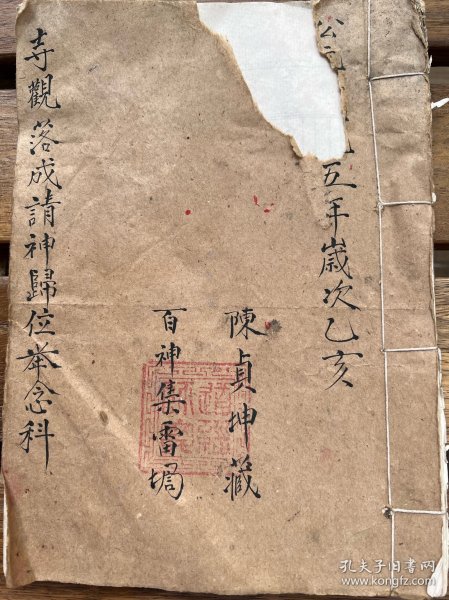 公元
五年歲次乙亥
陳貞坤藏
百神集雷壇
寺觀落成請神歸位举念科
孔夫子旧书网
www.kongfz.com